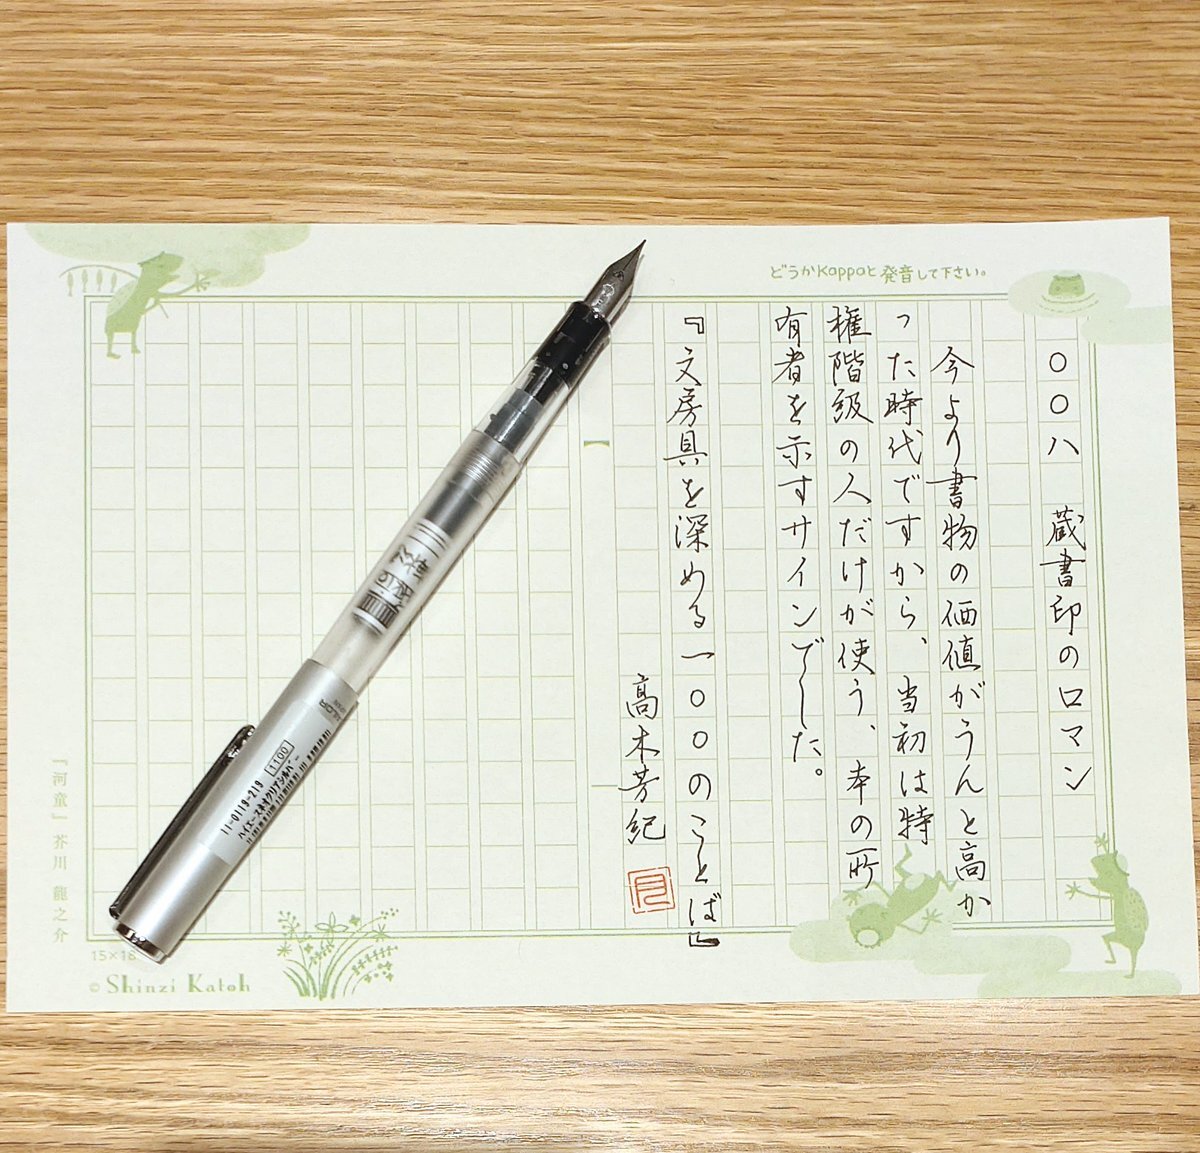 どうかKappaと発音して下さい。
〇〇八 蔵書印のロマン
今より書物の価値がうんと高か
った時代ですから、当初は特
権階級の人だけが使う、本の所
有者を示すサインでした。
『文房具を深める一〇〇のことば』
高木芳紀
『河童』芥川 龍之介
15×18
© Shinzi Katoh
11-0119-219
1100
ハイエースネオクリアシルバー